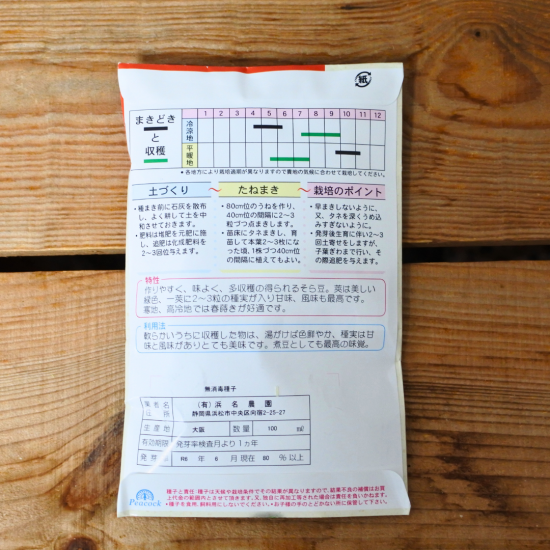 紙
まきどき
と
収穫
1 2 3 4 5 6 7 8 9 10 11 12
冷涼地
平暖地
●各地方により栽培適期が異なりますので貴地の気候に合わせて栽培してください。
土づくり
・種まき前に石灰を散布
し、よく耕して土を中
和させておきます。
・肥料は堆肥を元肥に施
し、追肥は化成肥料を
2〜3回与えます。
たねまき
・80cm位のうねを作り、
40cm位の間隔に2〜3
粒づつ点まきします。
・苗床にタネまきし、育
苗して本葉2〜3枚にな
った頃、1株づつ40cm位
の間隔に植えてもよい。
栽培のポイント
・早まきしないように、
又、タネを深くうめ込
みすぎないように。
・発芽後生育に伴い2〜3
回土寄せをしますが、
子葉ぎわまで行い、そ
の際追肥を与えます。
特性
作りやすく、味よく、多収穫の得られるそら豆。莢は美しい
緑色、一莢に2〜3粒の種実が入り甘味、風味も最高です。
寒地、高冷地では春蒔きが好適です。
利用法
軟らかいうちに収穫した物は、湯がけば色鮮やか、種実は甘
味と風味がありとても美味です。煮豆としても最高の味覚。
無消毒種子
業者名
住所
(有)浜名農園
静岡県浜松市中央区向宿2-25-27
生産地 大阪 数量 100 ml
有効期限 発芽率検査月より1カ年
発芽 R6 年 6 月現在 80 %以上
Peacock
・種子と責任:種子は天候や栽培条件でその結果が異なりますので、結果不良の補償はお買
上代金の範囲内とさせて頂きます。又、独自に再加工等された場合は責任を負いかねます。
・種子を食用、飼料用にしないでください。・お子様の手のとどかない所に保管して下さい。